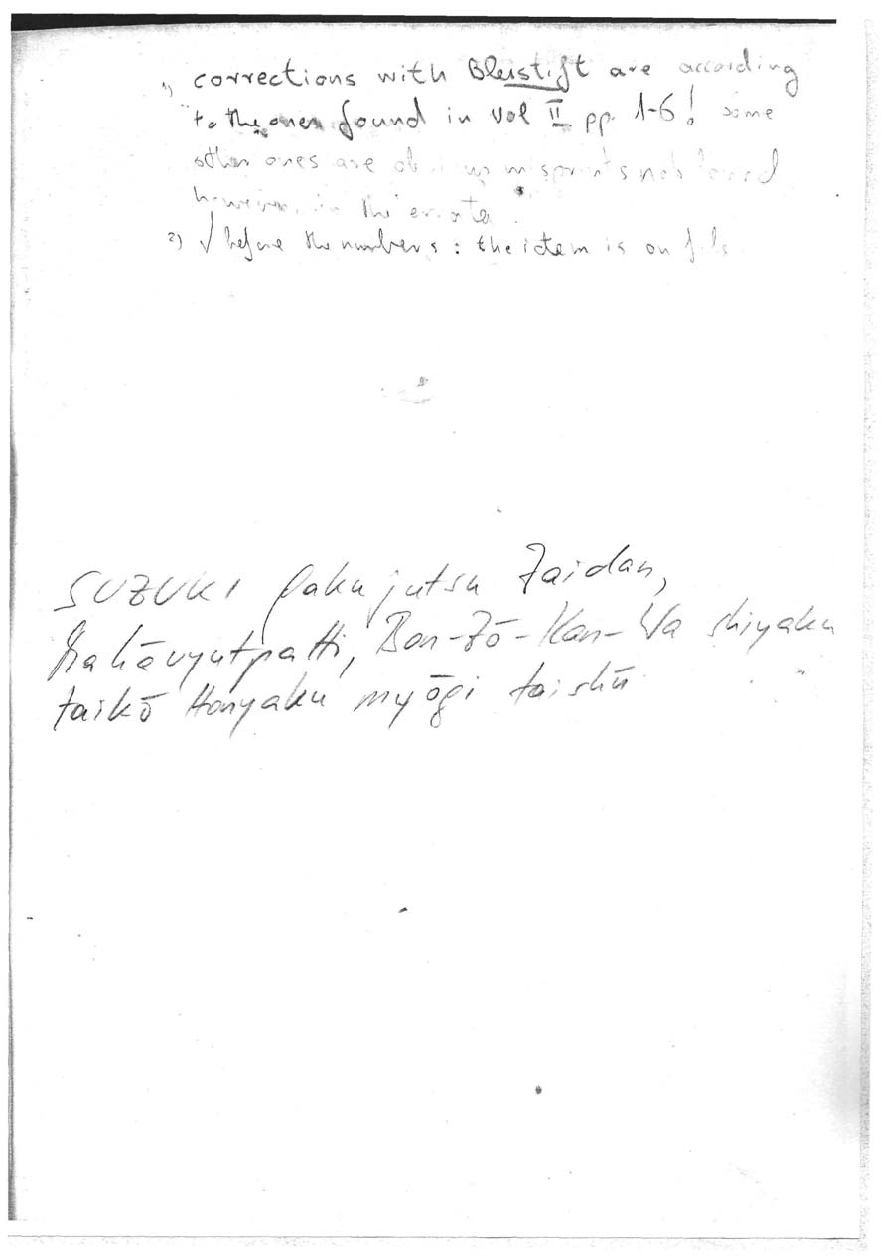 1) corrections with Bleistift are according
to the ones found in vol II pp. 1-6! some
other ones are misprints not
however, in the errata.
2) √ before the numbers: the item is on
SUZUKI Gakujutsu Zaidan,
Mahāvyutpatti, Bon-Zō-Kan-Wa shiyaku
taikō Honyaku myōgi taishū